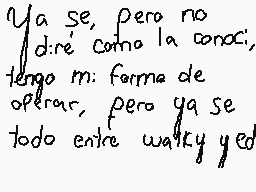 Ya se, pero no
diré como la conoci,
tengo mi forma de
operar, pero ya se
todo entre walky y ed